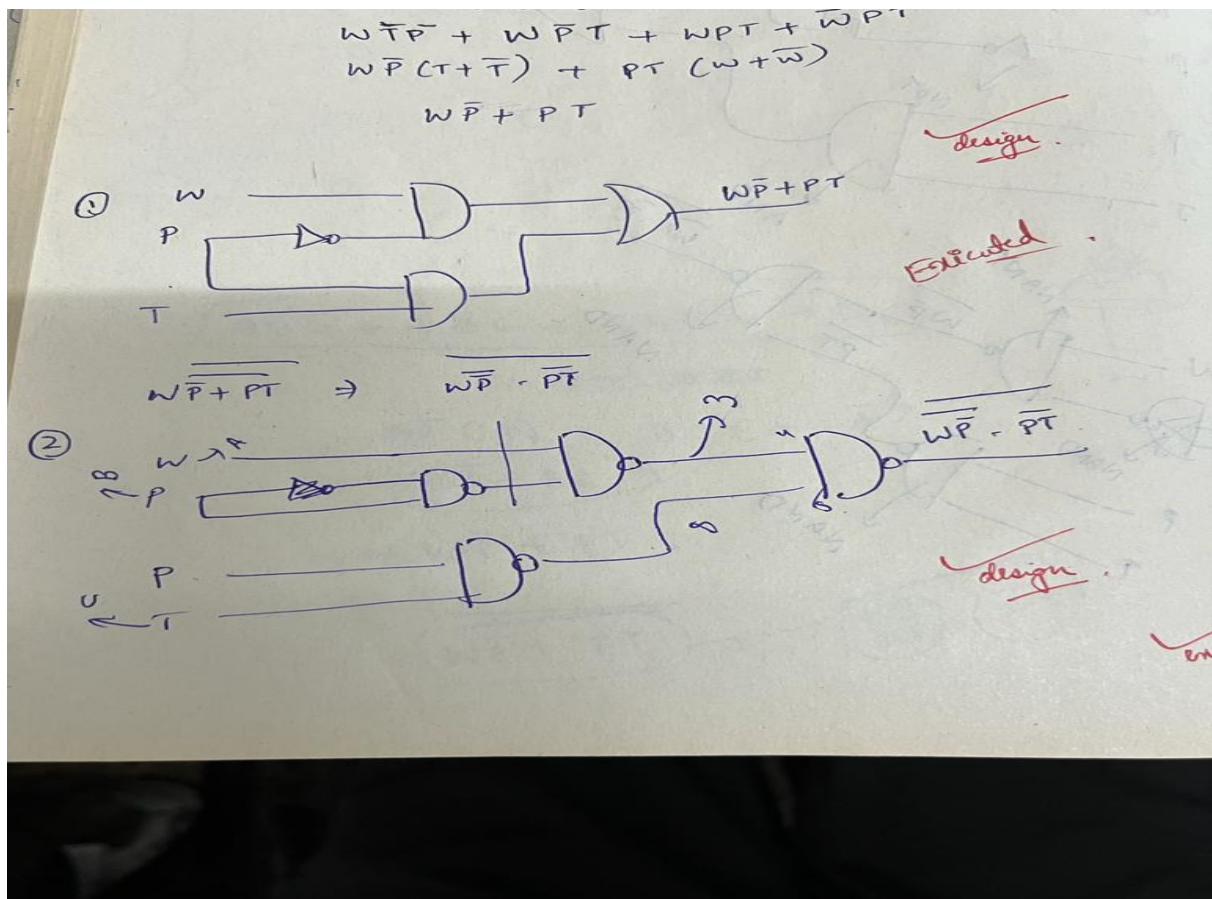 W T̄ P̄ + W P̄ T + WPT + W̄ P T
W P̄ (T + T̄) + PT (W + W̄)
W P̄ + P T
design.
① W
P
T
W P̄ + P T
Executed.
W P̄ + PT ⇒ W P̄ . P T
② W A
B P
P
U T
3
4
8
6
W P̄ . P T
design.
ex